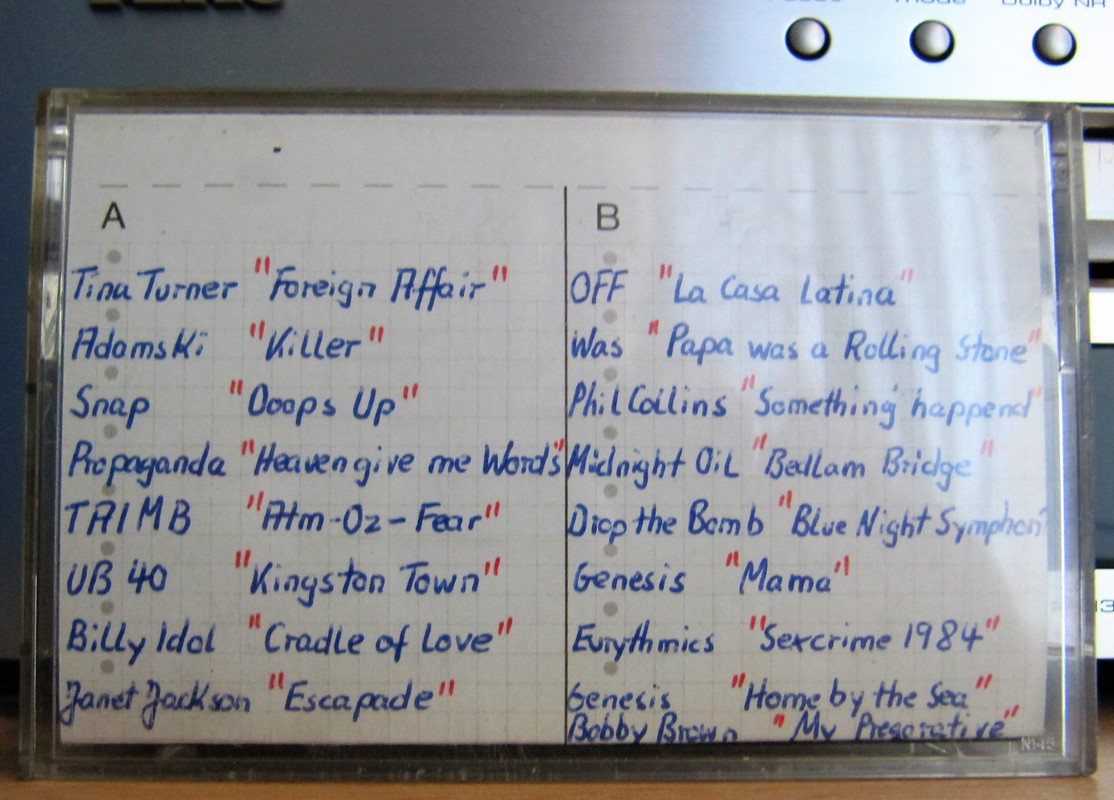 mode Dolby NR
A
Tina Turner "Foreign Affair"
Adamski "Killer"
Snap "Ooops Up"
Propaganda "Heaven give me Words"
TRIMB "Atm-Oz-Fear"
UB 40 "Kingston Town"
Billy Idol "Cradle of Love"
Janet Jackson "Escapade"
B
OFF "La Casa Latina"
Was "Papa was a Rolling Stone"
Phil Collins "Something happend"
Midnight Oil "Bedlam Bridge"
Drop the Bomb "Blue Night Symphon"
Genesis "Mama"
Eurythmics "Sexcrime 1984"
Genesis "Home by the Sea"
Bobby Brown "My Pregorative"